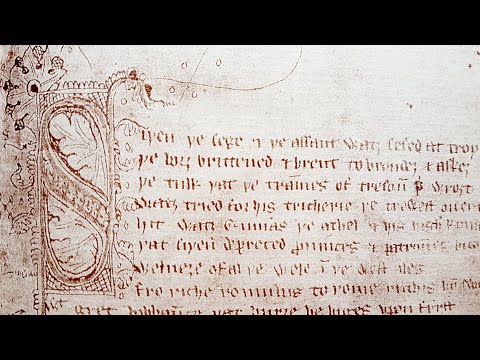 Siþen þe sege & þe assaut watz sesed at troy
þe borȝ brittened & brent to brondez & askez
þe tulk þat þe tra̅mes of tresoun þ̉ wroȝt
Watz tried for his tricherie þe trewest on ert
hit watz Ennias þe athel & his highe
þat siþen depreced prouinces & patrounes bico
Welneȝe of al þe wele i̅ þe west iles
fro riche romulus to rome ricchis hy̅
gret bobbau̅ce þat burȝe he biges vpon fyrst